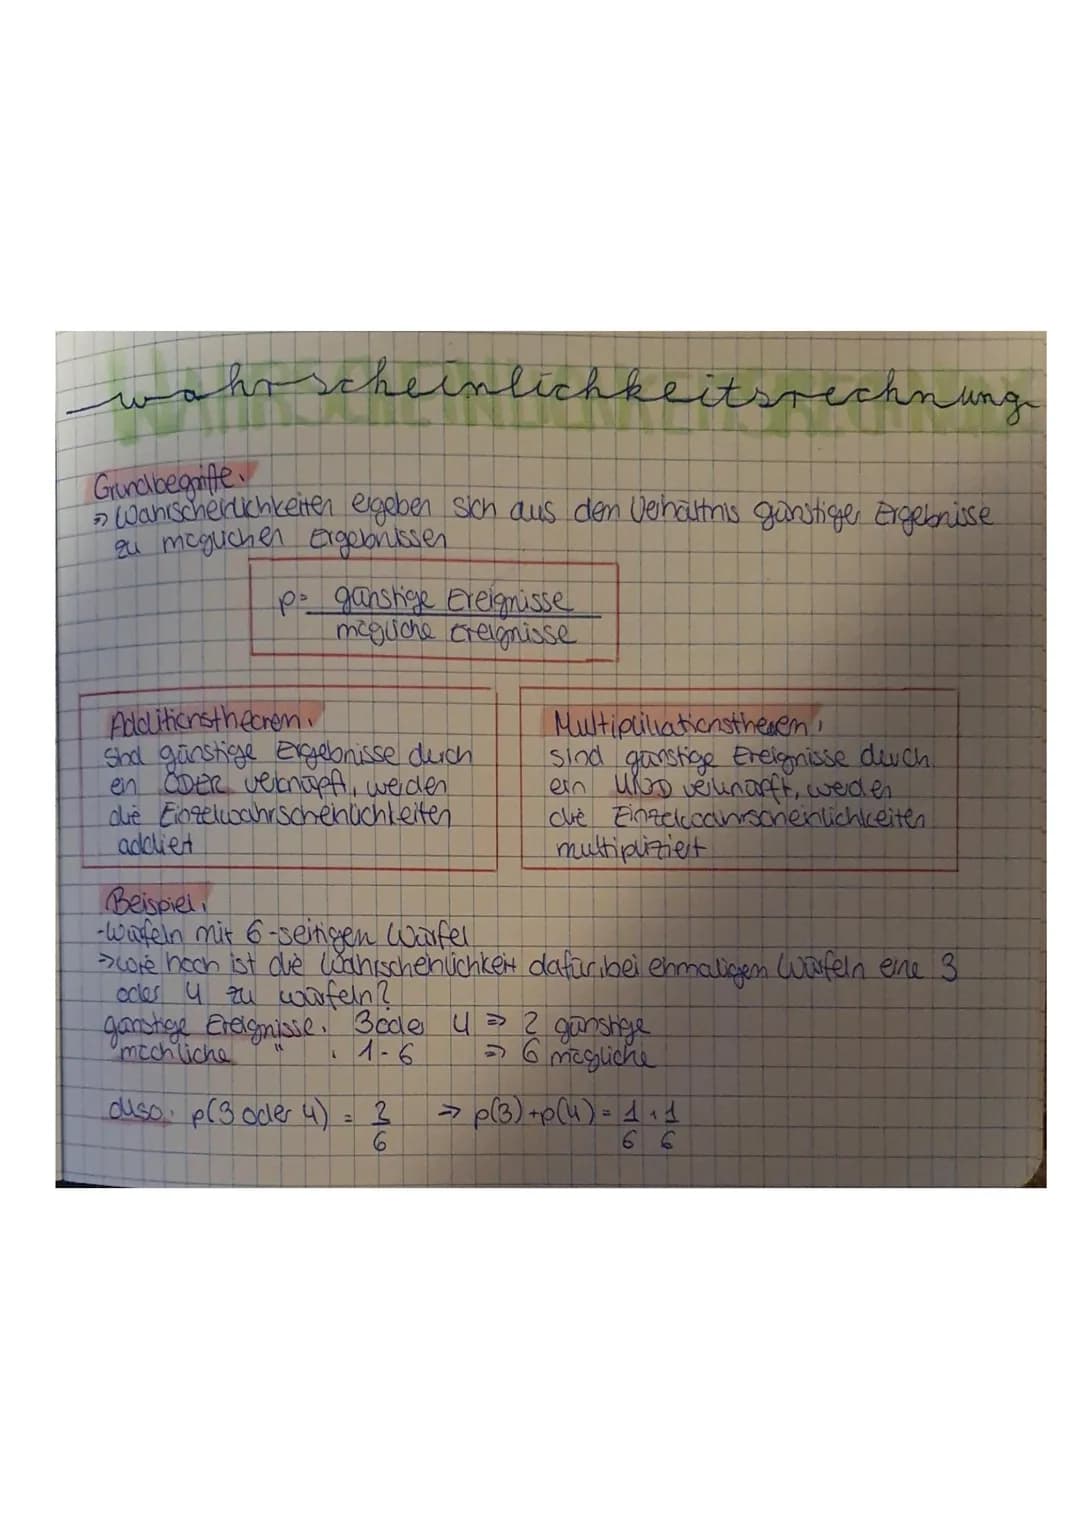 wahrscheinlichkeitsrechnung
Grundbegriffe:
⇒ Wahrscheinlichkeiten ergeben sich aus dem Verhältnis günstiger Ergebnisse
zu möglichen Ergebnissen
p= günstige Ereignisse
mögliche Ereignisse
Additionstheorem:
Sind günstige Ergebnisse durch
ein ODER verknüpft, werden
die Einzelwahrscheinlichkeiten
addiert
Multiplikationstheorem:
sind günstige Ereignisse durch
ein UND verknüpft, werden
die Einzelwahrscheinlichkeiten
multipliziert
Beispiel:
-Würfeln mit 6-seitigen Würfel
⇒ wie hoch ist die Wahrscheinlichkeit dafür, bei einmaligem Würfeln eine 3
oder 4 zu würfeln?
günstige Ereignisse: 3 oder 4 ⇒ 2 günstige
möchliche " : 1-6 ⇒ 6 mögliche
also: p(3 oder 4) = 2/6 ⇒ p(3)+p(4) = 1/6 + 1/6